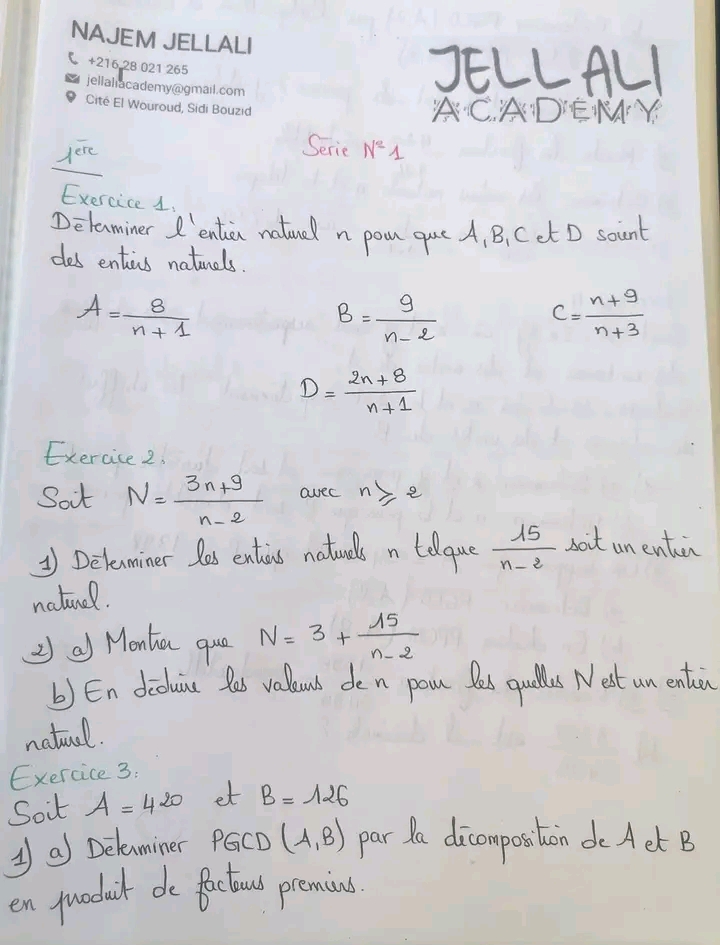 NAJEM JELLALI
+216 28 021 265
jellaliacademy@gmail.com
Cité El Wouroud, Sidi Bouzid
JELLALI
ACADEMY
1ère
Série N° 1
Exercice 1.
Déterminer l'entier naturel n pour que A, B, C et D soient
des entiers naturels.
A = 8/(n+1) B = 9/(n-2) C = (n+9)/(n+3)
D = (2n+8)/(n+1)
Exercice 2.
Soit N = (3n+9)/(n-2) avec n ⩾ 2
1) Déterminer les entiers naturels n telque 15/(n-2) soit un entier
naturel.
2) a) Montrer que N = 3 + 15/(n-2)
b) En déduire les valeurs de n pour les quelles N est un entier
naturel.
Exercice 3:
Soit A = 420 et B = 126
1) a) Déterminer PGCD (A,B) par la décomposition de A et B
en produit de facteurs premiers.